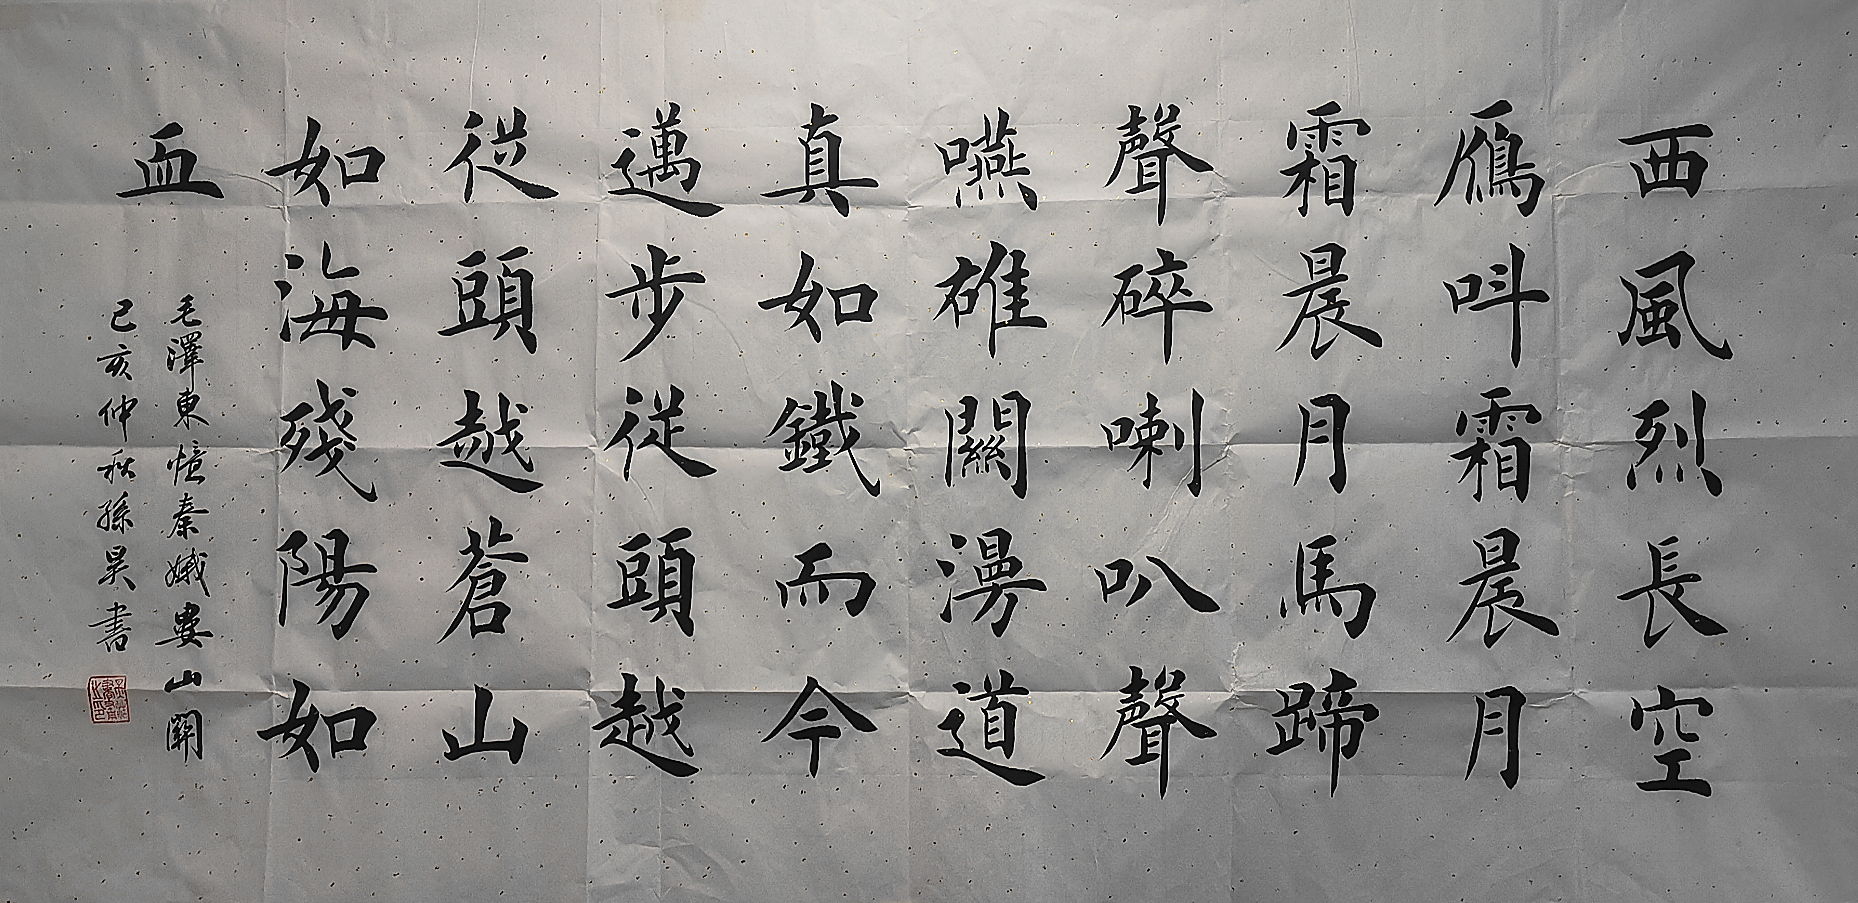 西風烈長空
鴈呌霜晨月
霜晨月馬蹄
聲碎喇叭聲
嚥雄關漫道
真如鐵而今
邁步從頭越
從頭越蒼山
如海殘陽如
血
毛澤東憶秦娥婁山關
己亥仲秋孫昊書